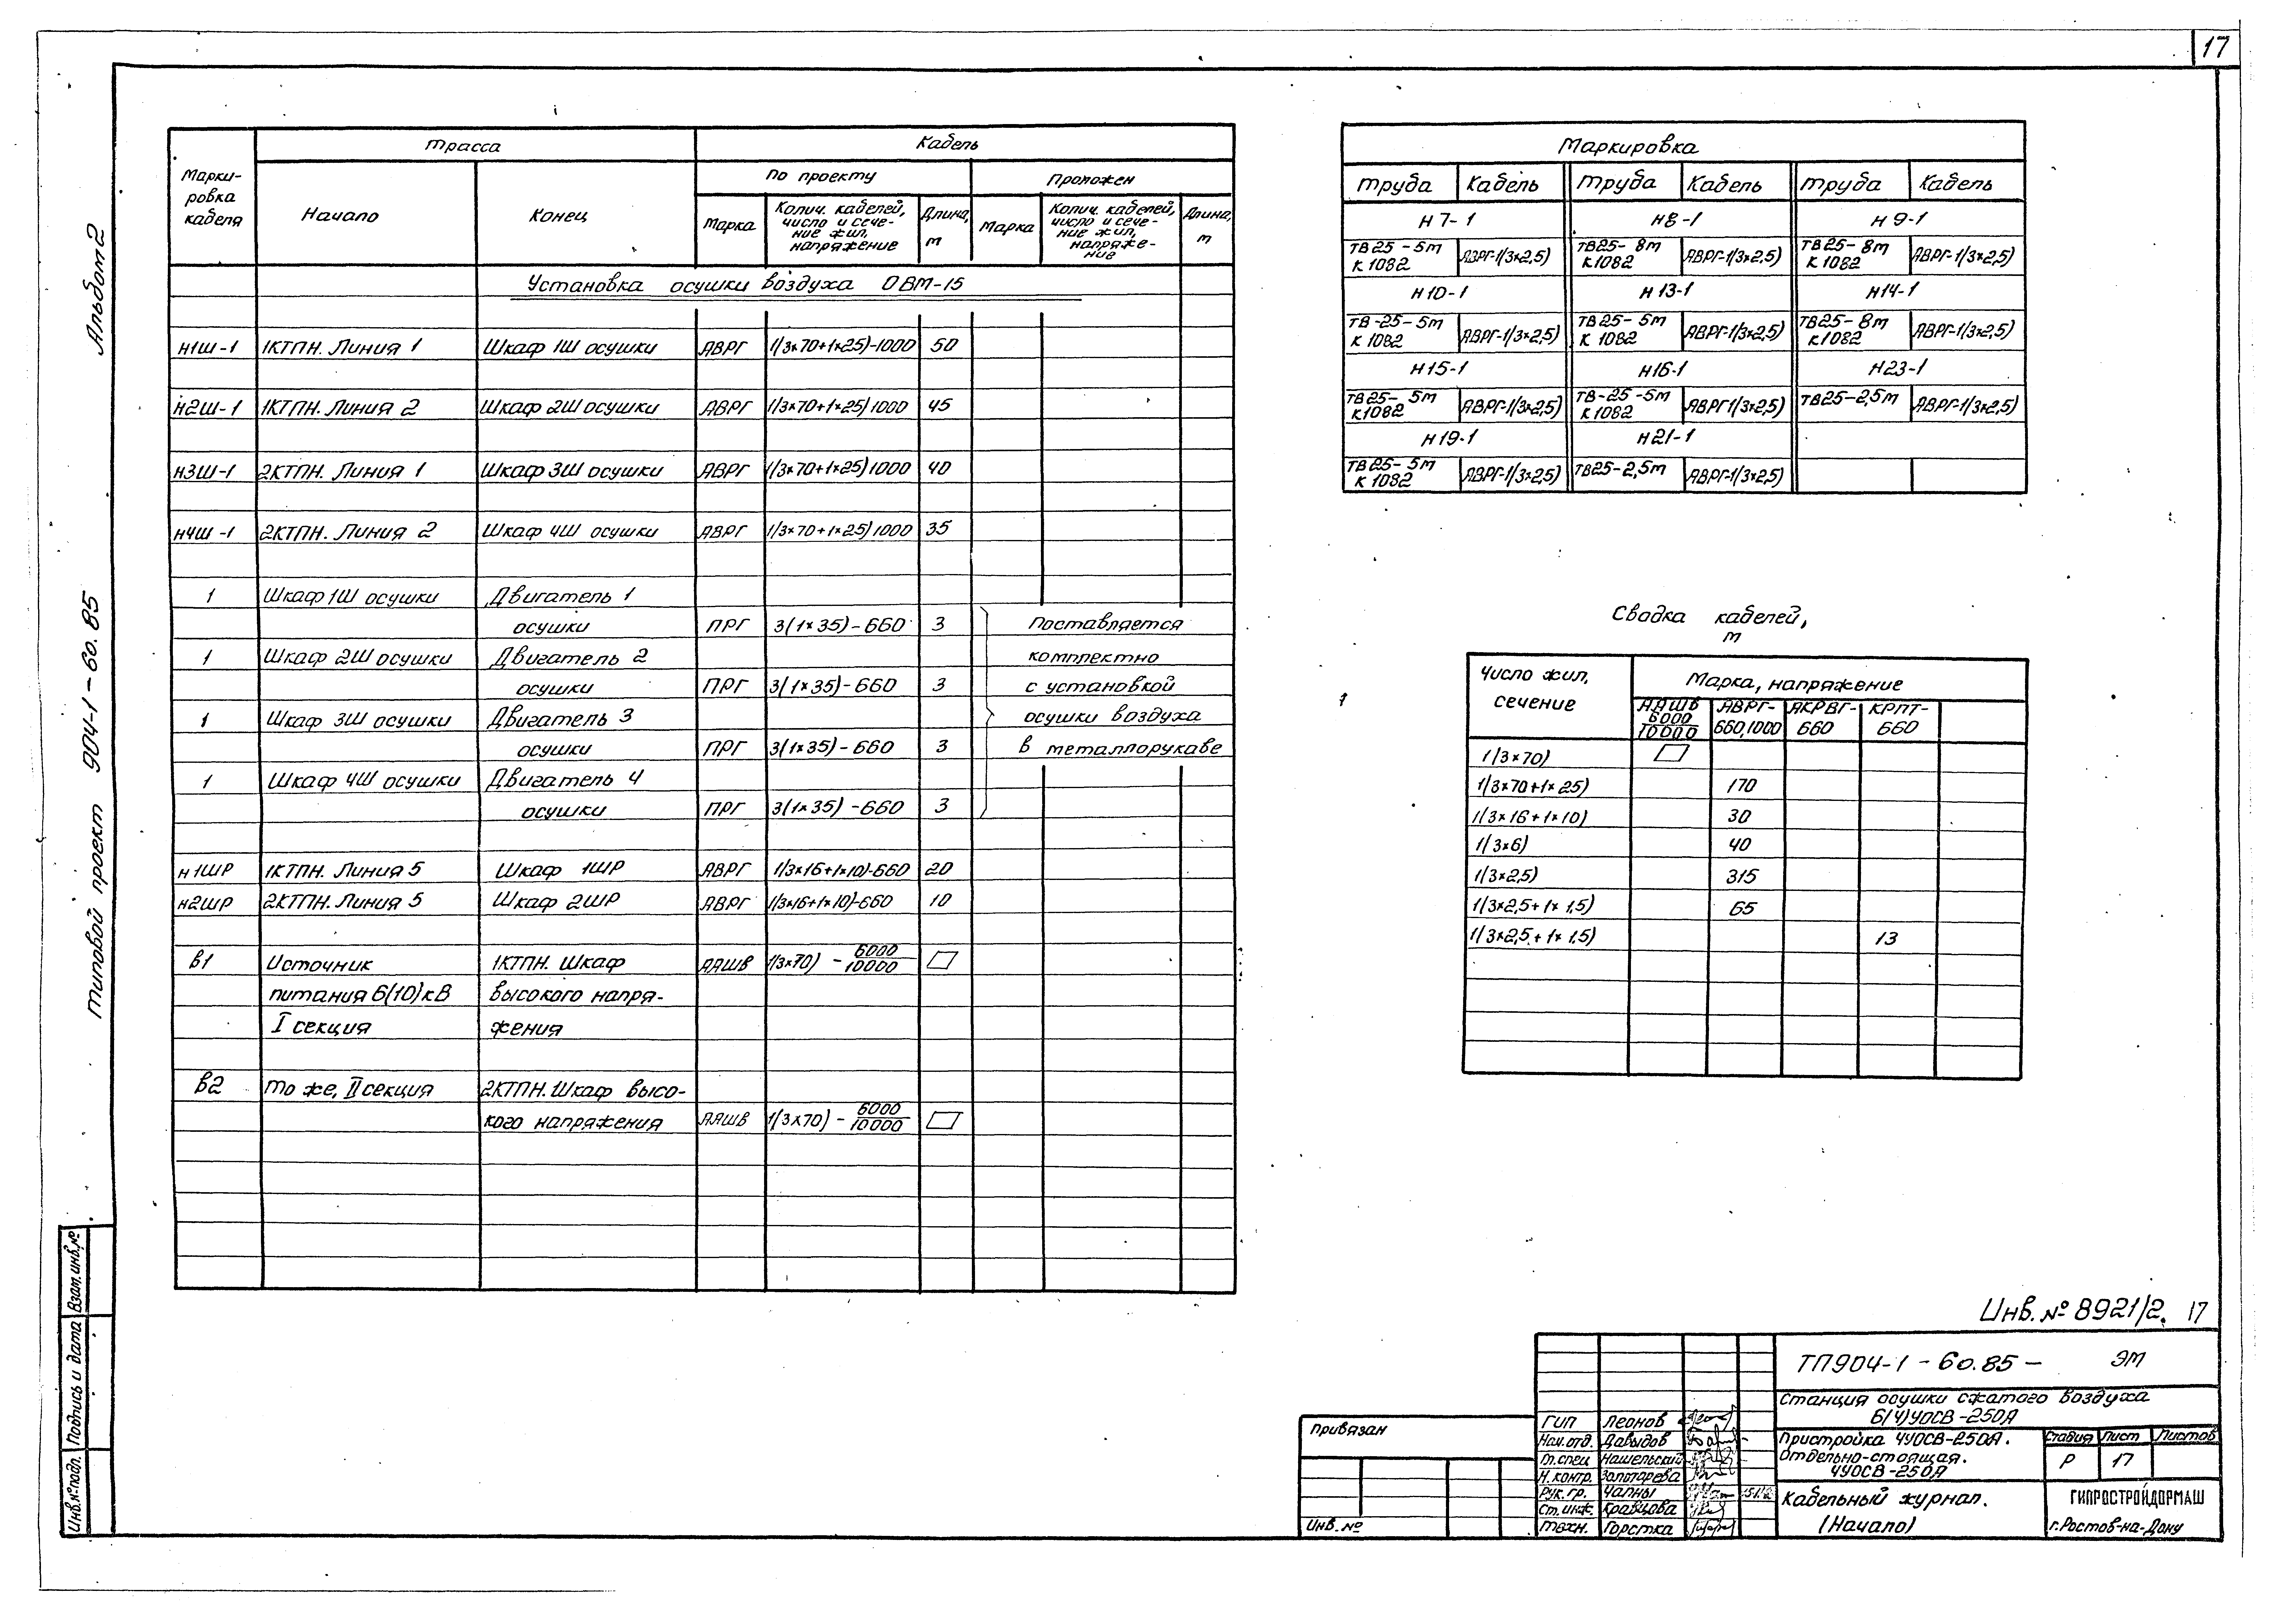 17
Альбом 2
Типовой проект 904-1-60.85
Взам. инв. №
Подпись и дата
Инв. № подл.
Марки-
ровка
кабеля
Трасса
Кабель
Начало
Конец
По проекту
Проложен
Марка
Колич. кабелей,
число и сече-
ние жил,
напряжение
Длина,
м
Марка
Колич. кабелей,
число и сече-
ние жил,
напряже-
ние
Длина,
м
Установка осушки воздуха ОВМ-15
н1Ш-1 1КТПН. Линия 1 Шкаф 1Ш осушки АВРГ 1(3×70+1×25)-1000 50
н2Ш-1 1КТПН. Линия 2 Шкаф 2Ш осушки АВРГ 1(3×70+1×25)1000 45
н3Ш-1 2КТПН. Линия 1 Шкаф 3Ш осушки АВРГ 1(3×70+1×25)1000 40
н4Ш-1 2КТПН. Линия 2 Шкаф 4Ш осушки АВРГ 1(3×70+1×25)1000 35
1 Шкаф 1Ш осушки Двигатель 1
осушки ПРГ 3(1×35)-660 3 Поставляется
1 Шкаф 2Ш осушки Двигатель 2 комплектно
осушки ПРГ 3(1×35)-660 3 с установкой
1 Шкаф 3Ш осушки Двигатель 3 осушки воздуха
осушки ПРГ 3(1×35)-660 3 в металлорукаве
1 Шкаф 4Ш осушки Двигатель 4
осушки ПРГ 3(1×35)-660 3
н1ШР 1КТПН. Линия 5 Шкаф 1ШР АВРГ 1(3×16+1×10)-660 20
н2ШР 2КТПН. Линия 5 Шкаф 2ШР АВРГ 1(3×16+1×10)-660 10
В1 Источник 1КТПН. Шкаф ААШВ 1(3×70) - 6000/10000
питания 6(10)кВ высокого напря-
I секция жения
В2 То же, II секция 2КТПН. Шкаф высо-
кого напряжения ААШВ 1(3×70) - 6000/10000
Маркировка
Труба Кабель Труба Кабель Труба Кабель
Н7-1 Н8-1 Н9-1
ТВ25-5м АВРГ-1(3×2,5) ТВ25-8м АВРГ-1(3×2,5) ТВ25-8м АВРГ-1(3×2,5)
К1082 К1082 К1082
Н10-1 Н13-1 Н14-1
ТВ-25-5м АВРГ-1(3×2,5) ТВ25-5м АВРГ-1(3×2,5) ТВ25-8м АВРГ-1(3×2,5)
К1082 К1082 К1082
Н15-1 Н16-1 Н23-1
ТВ25-5м АВРГ-1(3×2,5) ТВ-25-5м АВРГ1(3×2,5) ТВ25-2,5м АВРГ-1(3×2,5)
К1082 К1082
Н19-1 Н21-1
ТВ25-5м АВРГ-1(3×2,5) ТВ25-2,5м АВРГ-1(3×2,5)
К1082
Сводка кабелей,
м
Число жил,
сечение
Марка, напряжение
ААШВ 6000/10000 АВРГ-660,1000 АКРВГ-660 КРПТ-660
1(3×70)
1(3×70+1×25) 170
1(3×16+1×10) 30
1(3×6) 40
1(3×2,5) 315
1(3×2,5+1×1,5) 65
1(3×2,5+1×1,5) 13
Инв. № 8921/2. 17
ТП904-1-60.85- ЭМ
Станция осушки сжатого воздуха
6(4)УОСВ-250А
Пристройка 4УОСВ-250А.
Отдельно-стоящая.
4УОСВ-250А
Стадия Лист Листов
Р 17
Кабельный журнал.
(Начало)
ГИПРОСТРОЙДОРМАШ
г. Ростов-на-Дону
Привязан
Инв. №
ГИП Леонов
Нач. отд. Давыдов
Гл. спец Нашельский
Н. контр. Золотарева
Рук. гр. Чапны
Ст. инж. Кравцова
Техн. Горстка